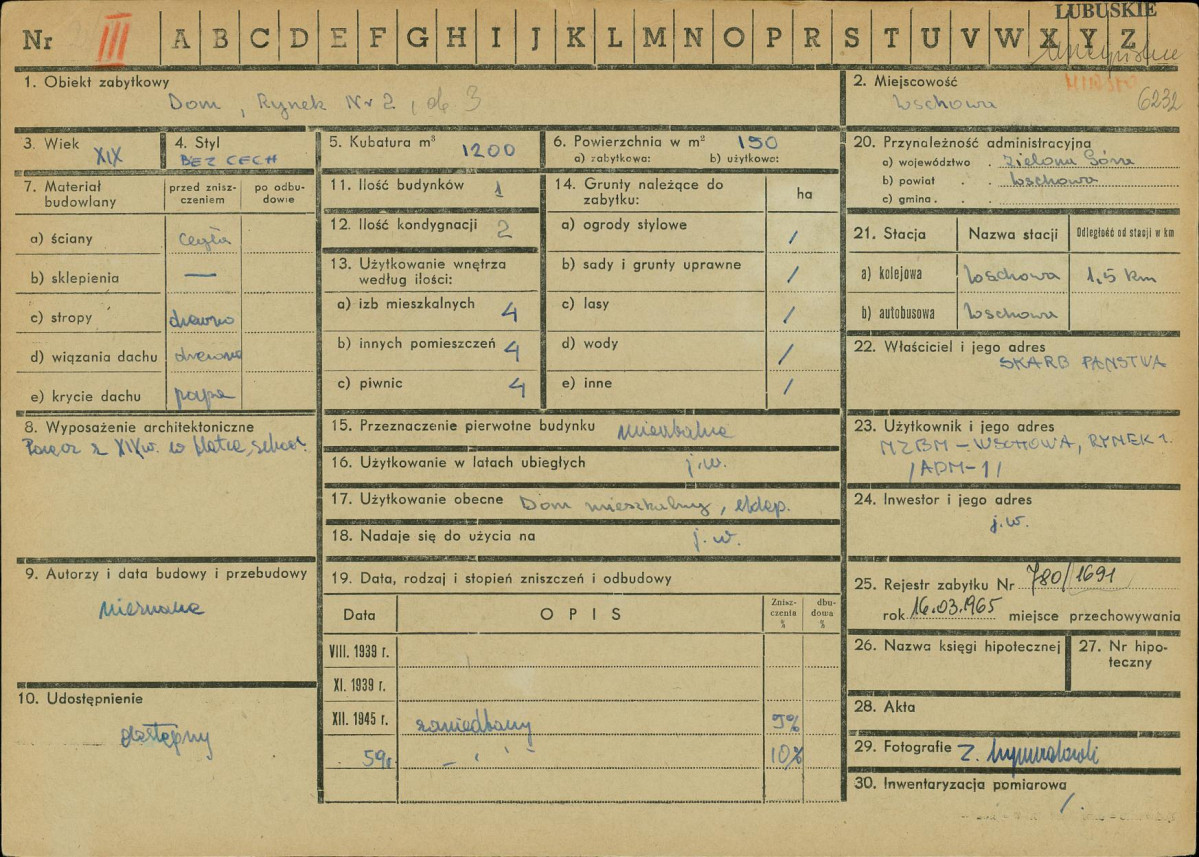 LUBUSKIE
Nr III A B C D E F G H I J K L M N O P R S T U V W X Y Z
1. Obiekt zabytkowy
Dom, Rynek Nr 2, d. 3
2. Miejscowość
Wschowa
6232
3. Wiek
XIX
4. Styl
BEZ CECH
5. Kubatura m³ 1200
6. Powierzchnia w m² 190
a) zabytkowa: b) użytkowa:
7. Materiał budowlany
przed zniszczeniem
po odbudowie
a) ściany cegła
b) sklepienia —
c) stropy drewno
d) wiązania dachu drewno
e) krycie dachu papa
8. Wyposażenie architektoniczne
Poręcz z XIXw. w klatce schod.
9. Autorzy i data budowy i przebudowy
nieznane
10. Udostępnienie
dostępny
11. Ilość budynków 1
12. Ilość kondygnacji 2
13. Użytkowanie wnętrza
według ilości:
a) izb mieszkalnych 4
b) innych pomieszczeń 4
c) piwnic 4
14. Grunty należące do
zabytku:
ha
a) ogrody stylowe /
b) sady i grunty uprawne /
c) lasy /
d) wody /
e) inne /
15. Przeznaczenie pierwotne budynku mieszkalne
16. Użytkowanie w latach ubiegłych j.w.
17. Użytkowanie obecne Dom mieszkalny, sklep.
18. Nadaje się do użycia na j.w.
19. Data, rodzaj i stopień zniszczeń i odbudowy
Data
O P I S
Zniszczenia %
dbudowa %
VIII. 1939 r.
XI. 1939 r.
XII. 1945 r. zaniedbany 5%
59r — " — 10%
20. Przynależność administracyjna
a) województwo . Zielona Góra
b) powiat . . Wschowa
c) gmina . . .
21. Stacja
Nazwa stacji
Odległość od stacji w km
a) kolejowa Wschowa 1,5 km
b) autobusowa Wschowa
22. Właściciel i jego adres
SKARB PAŃSTWA
23. Użytkownik i jego adres
MZBM – WSCHOWA, RYNEK 1.
/ADM-1/
24. Inwestor i jego adres
j.w.
25. Rejestr zabytku Nr 780/1691
rok 16.03.1965 miejsce przechowywania
26. Nazwa księgi hipotecznej
27. Nr hipoteczny
28. Akta
29. Fotografie Z.
30. Inwentaryzacja pomiarowa
/.